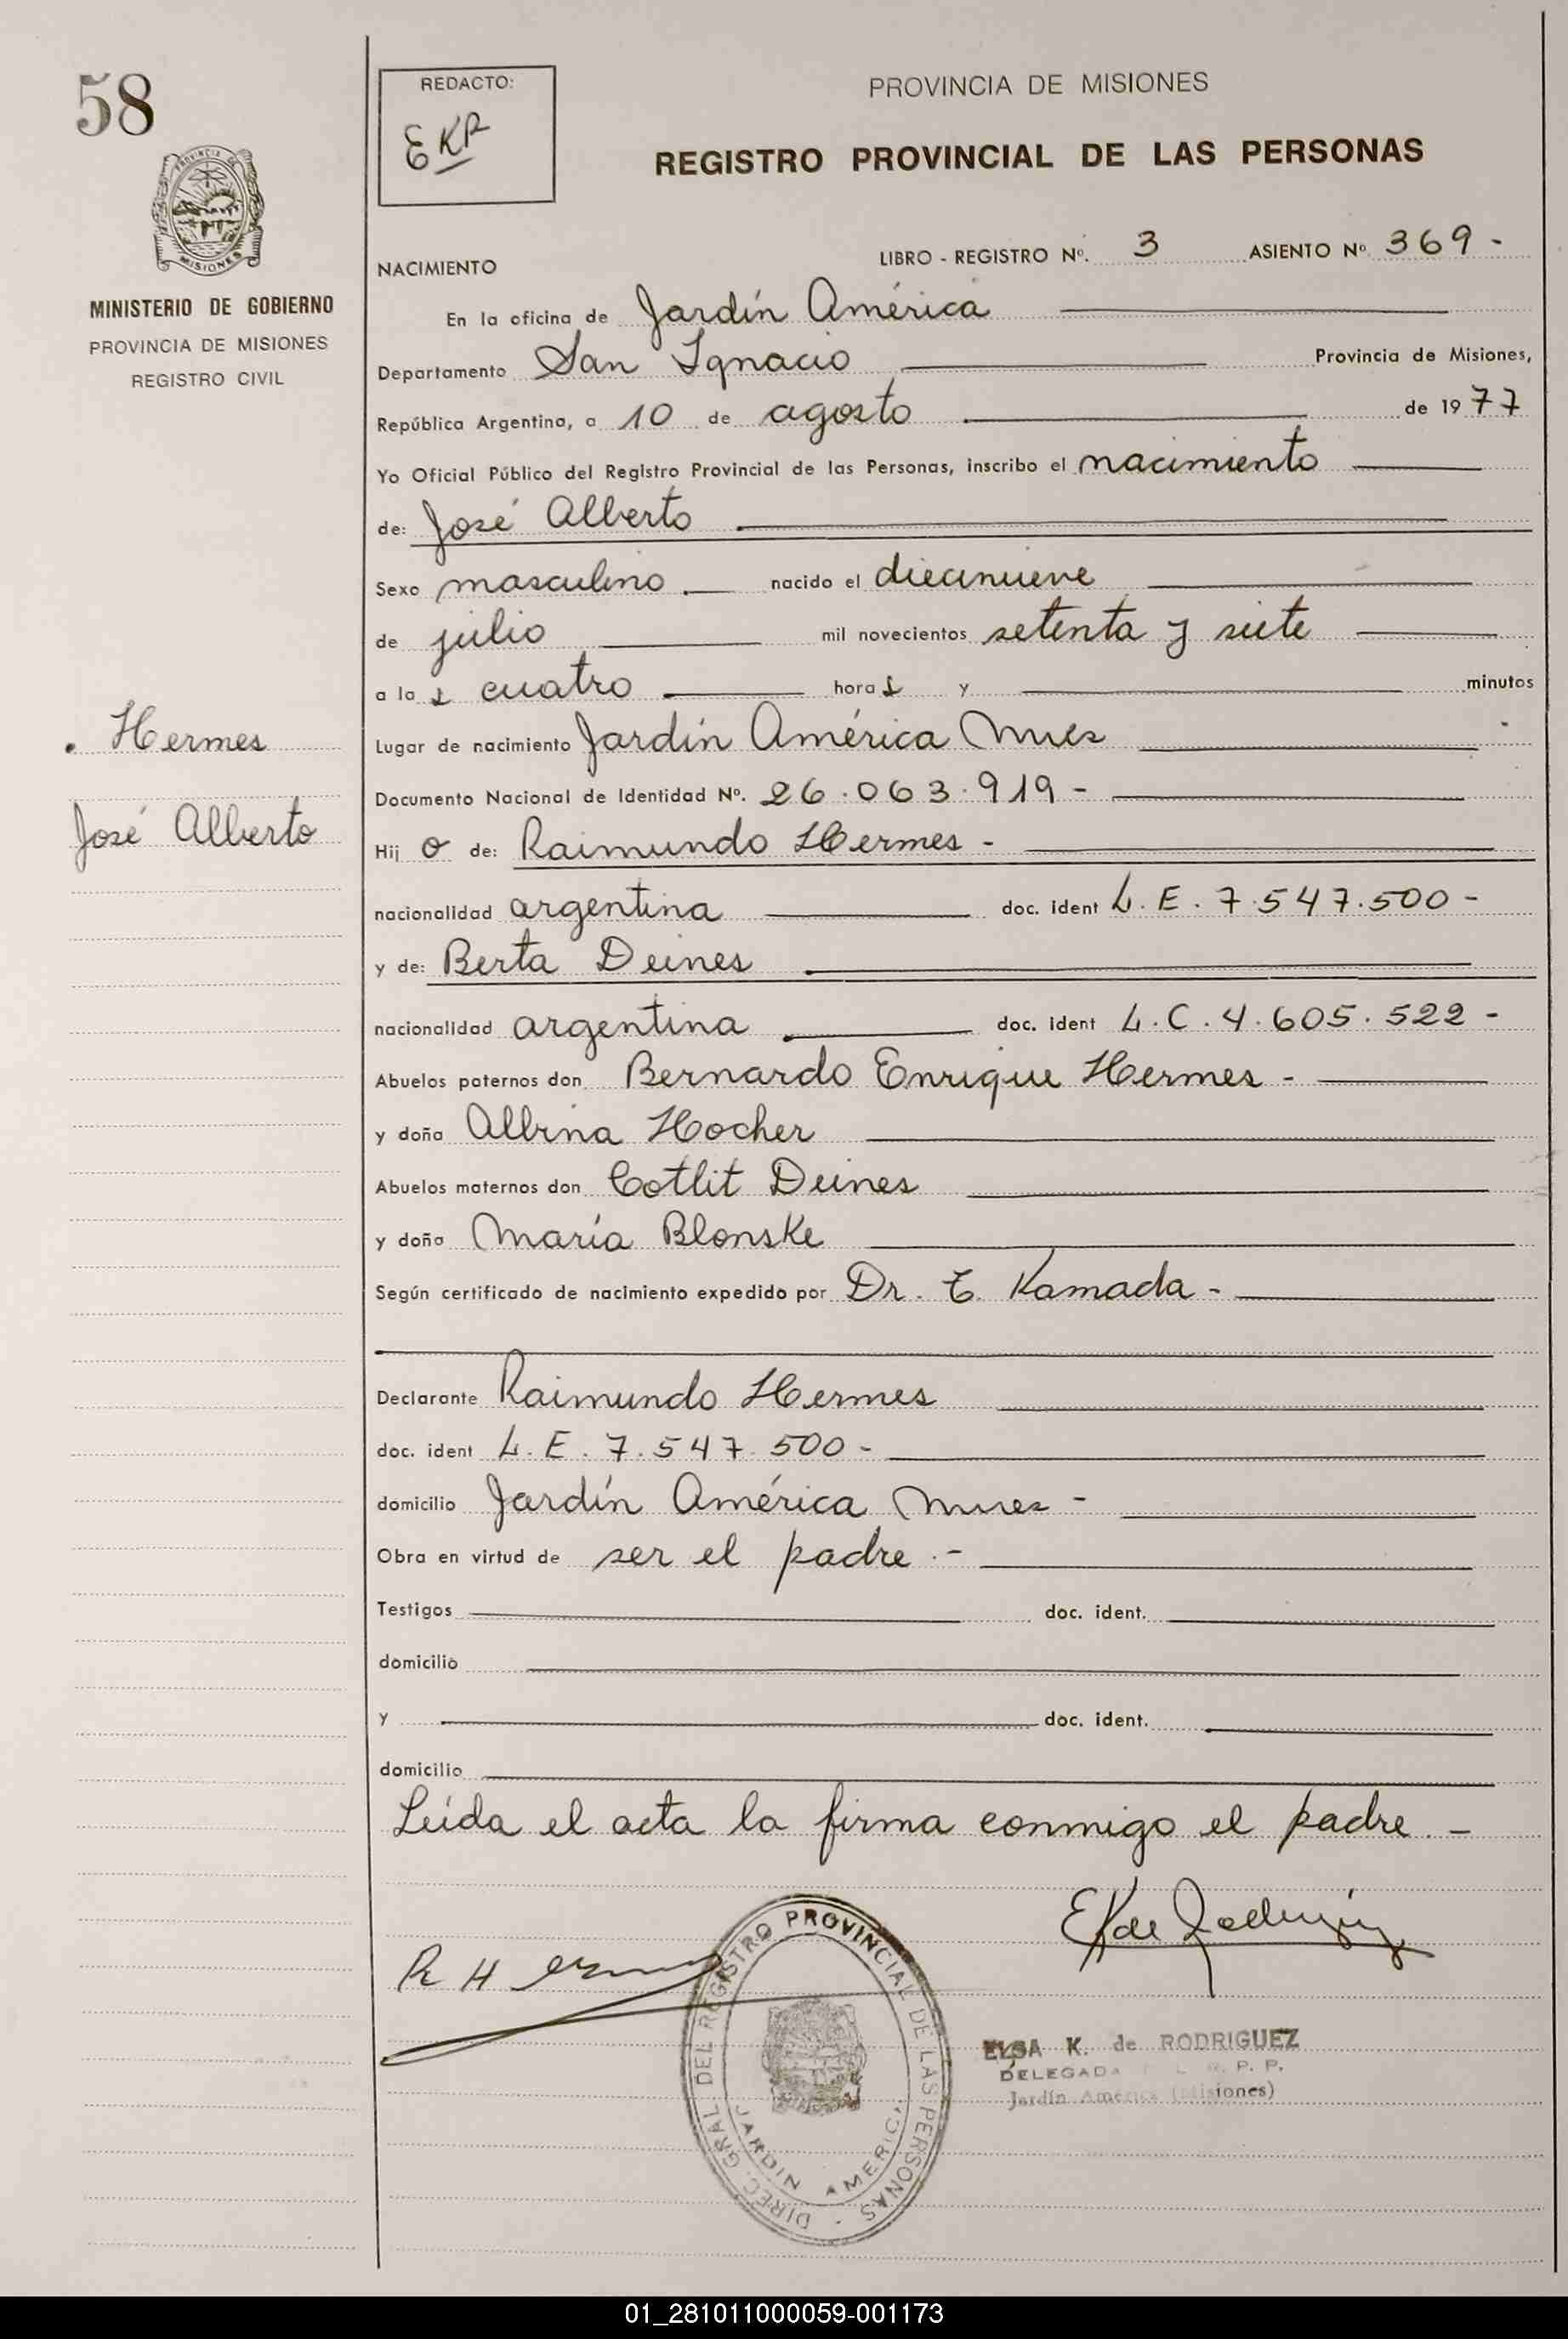 58
PROVINCIA DE
MISIONES
MINISTERIO DE GOBIERNO
PROVINCIA DE MISIONES
REGISTRO CIVIL
Hermes
José Alberto
REDACTO:
EKR
PROVINCIA DE MISIONES
REGISTRO PROVINCIAL DE LAS PERSONAS
LIBRO - REGISTRO Nº. 3 ASIENTO Nº 369 -
NACIMIENTO
En la oficina de Jardín América
Departamento San Ignacio Provincia de Misiones,
República Argentina, a 10 de agosto de 1977
Yo Oficial Público del Registro Provincial de las Personas, inscribo el nacimiento
de: José Alberto
Sexo masculino nacido el diecinueve
de julio mil novecientos setenta y siete
a las cuatro horas y minutos
Lugar de nacimiento Jardín América Mnes
Documento Nacional de Identidad Nº. 26.063.919 -
Hijo de: Raimundo Hermes -
nacionalidad argentina doc. ident L.E. 7.547.500 -
y de: Berta Deines
nacionalidad argentina doc. ident L.C. 4.605.522 -
Abuelos paternos don Bernardo Enrique Hermes -
y doña Albina Hocher
Abuelos maternos don Cotlit Deines
y doña María Blonske
Según certificado de nacimiento expedido por Dr. T. Kamada -
Declarante Raimundo Hermes
doc. ident L.E. 7.547.500 -
domicilio Jardín América Mnes -
Obra en virtud de ser el padre .-
Testigos doc. ident.
domicilio
y doc. ident.
domicilio
Leída el acta la firma conmigo el padre. -
EK de Rodriguez
R H
DIREC. GRAL DEL REGISTRO PROVINCIAL DE LAS PERSONAS -
JARDIN AMERICA
ELSA K. de RODRIGUEZ
DELEGADA R. P. P.
Jardín América (Misiones)
01_281011000059-001173